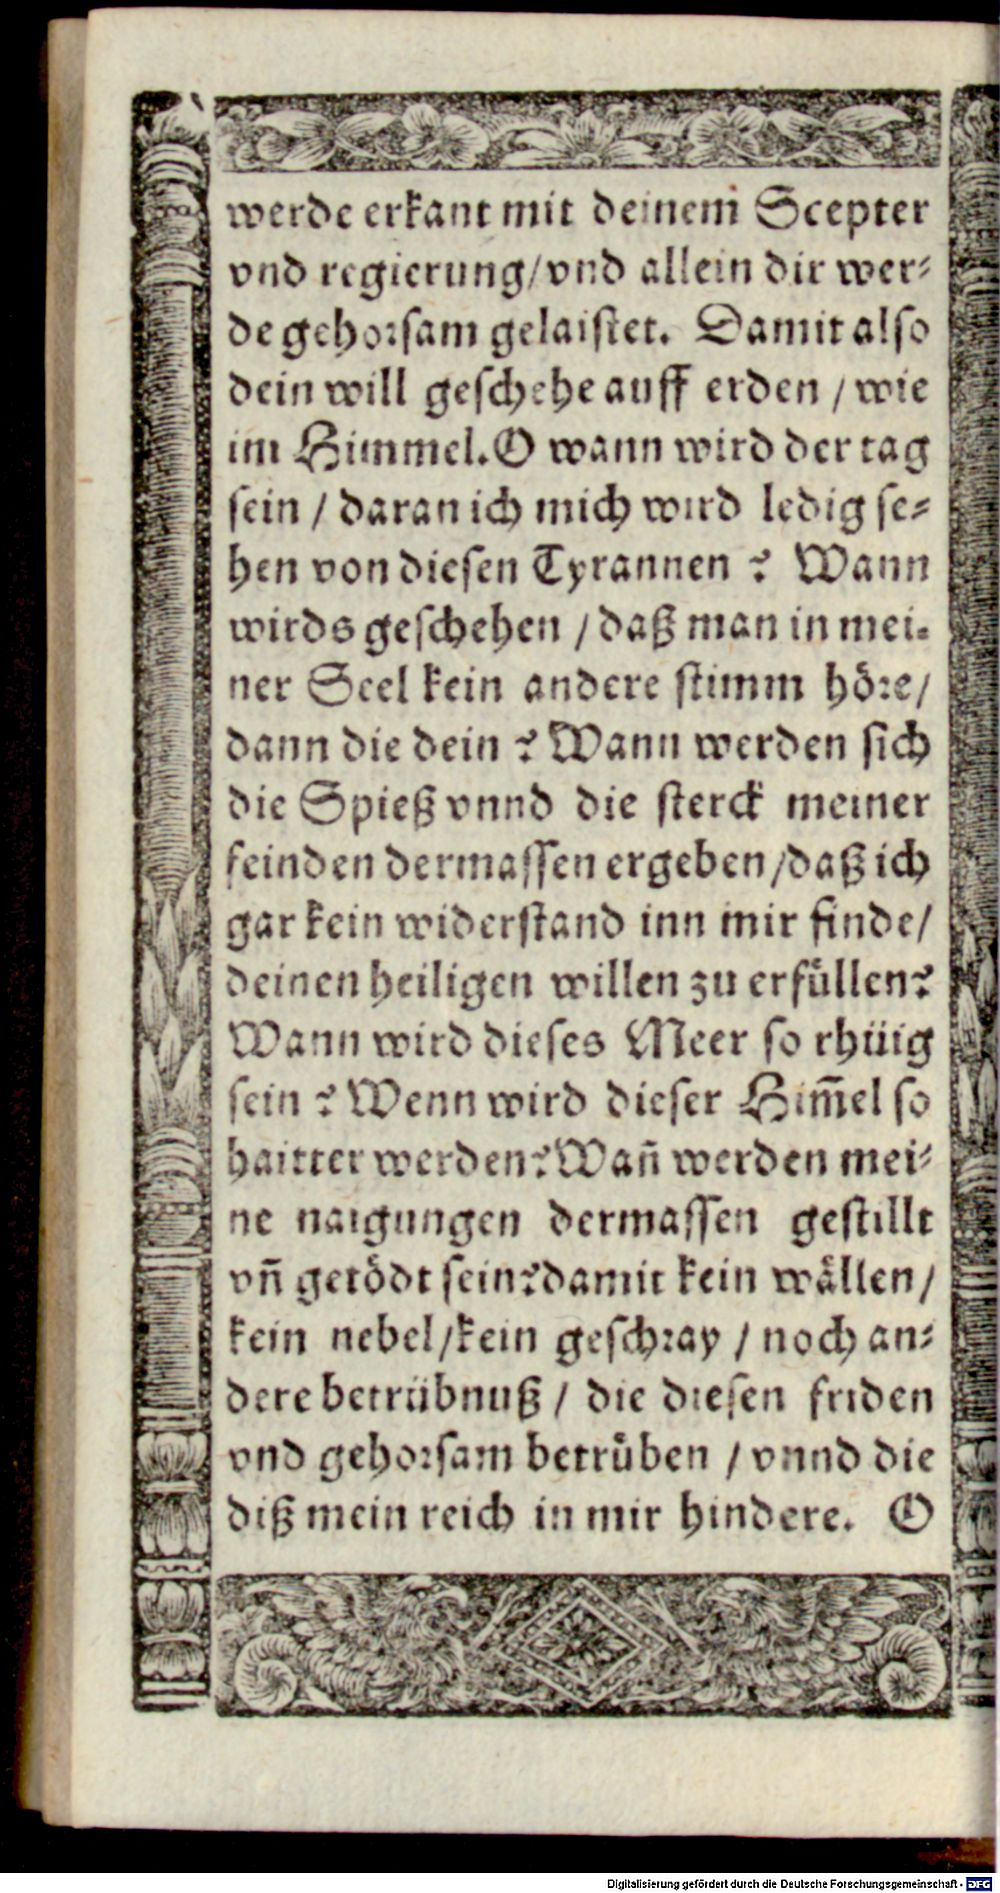 werde erkant mit deinem Scepter
vnd regierung/vnd allein dir wer-
de gehorsam gelaistet. Damit also
dein will geschehe auff erden / wie
im Himmel. O wann wird der tag
sein / daran ich mich wird ledig se-
hen von diesen Tyrannen ? Wann
wirds geschehen / daß man in mei-
ner Seel kein andere stimm höre/
dann die dein ? Wann werden sich
die Spieß vnnd die sterck meiner
feinden dermassen ergeben /daß ich
gar kein widerstand inn mir finde/
deinen heiligen willen zu erfüllen?
Wann wird dieses Meer so rhüig
sein ? Wenn wird dieser Him̃el so
haitter werden? Wañ werden mei-
ne naigungen dermassen gestillt
vñ getödt sein? damit kein wällen/
kein nebel/kein geschray / noch an-
dere betrübnuß / die diesen friden
vnd gehorsam betrüben / vnnd die
diß mein reich in mir hindere. O
Digitalisierung gefördert durch die Deutsche Forschungsgemeinschaft - DFG